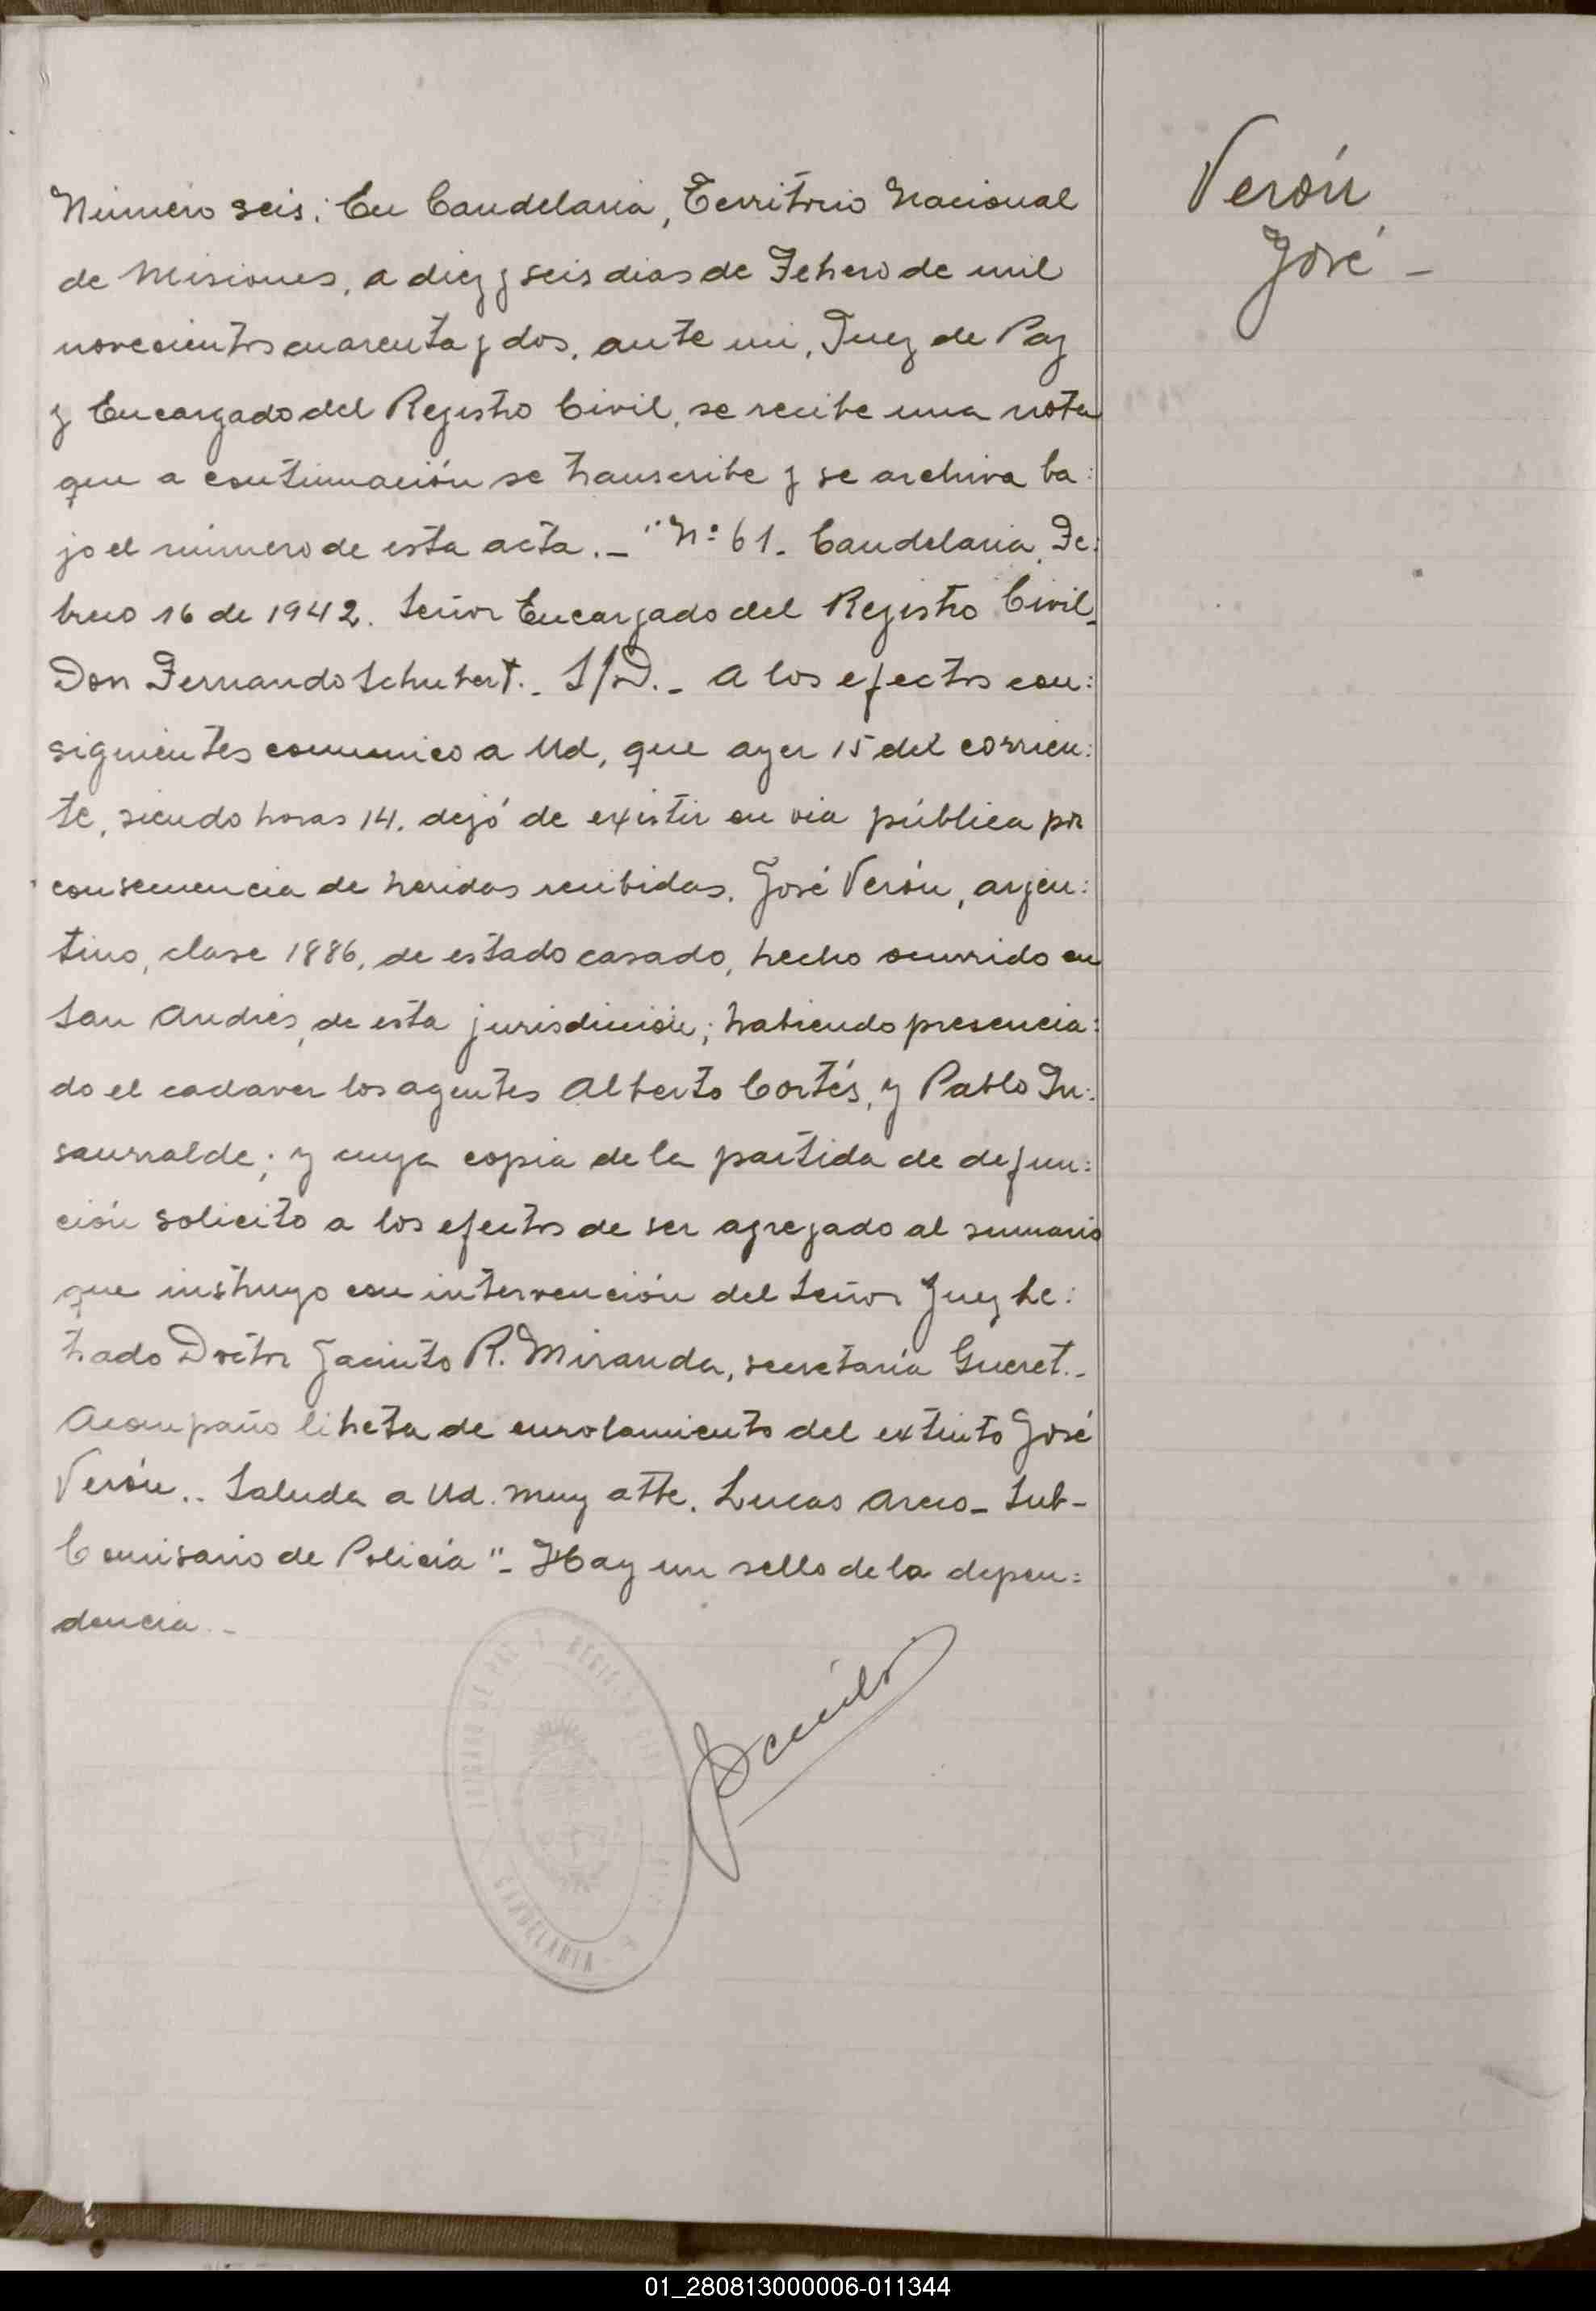 Verón
José -
Número seis: En Candelaria, Territorio Nacional
de Misiones, a diez y seis dias de Febrero de mil
novecientos cuarenta y dos, ante mi, Juez de Paz
y Encargado del Registro Civil, se recibe una nota
que a continuación se transcribe y se archiva ba:
jo el número de esta acta._ "Nº 61. Candelaria, Fe:
brero 16 de 1942. Señor Encargado del Registro Civil_
Don Fernando Schubert._ S/D._ A los efectos con:
siguientes comunico a Ud, que ayer 15 del corrien:
te, siendo horas 14. dejó de existir en via pública por
consecuencia de heridas recibidas. José Verón, argen:
tino, clase 1886, de estado casado, hecho ocurrido en
San Andrés, de esta jurisdicción; habiendo presencia:
do el cadaver los agentes Alberto Cortés, y Pablo In:
saurralde; y cuya copia de la partida de defun:
ción solicito a los efectos de ser agregado al sumario
que instruyo con intervención del Señor Juez Le:
trado Doctor Jacinto R. Miranda, secretaría Gueret._
Acompaño libreta de enrolamiento del extinto José
Verón.. Saluda a Ud. muy atte. Lucas Arceo_ Sub-
Comisario de Policía"_ Hay un sello de la depen:
dencia._
CANDELARIA
01_280813000006-011344